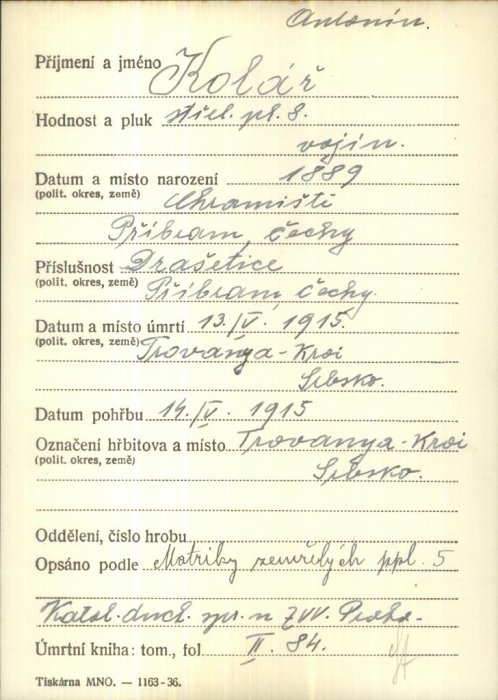 Antonín.
Příjmení a jméno Kolář
Hodnost a pluk střel. pl. 8.
vojín.
Datum a místo narození 1889
(polit. okres, země) Chramiště
Příbram, Čechy
Příslušnost Drašetice
(polit. okres, země) Příbram, Čechy.
Datum a místo úmrtí 13./IV. 1915.
(polit. okres, země) Trovanya-Kroi
Srbsko.
Datum pohřbu 14./IV. 1915
Označení hřbitova a místo Trovanya-Kroi
(polit. okres, země) Srbsko.
Oddělení, číslo hrobu
Opsáno podle Matriky zemřelých ppl. 5
Katol. duch. spr. u ZVV. Praha-
Úmrtní kniha: tom., fol II. 84.
Tiskárna MNO. — 1163-36.